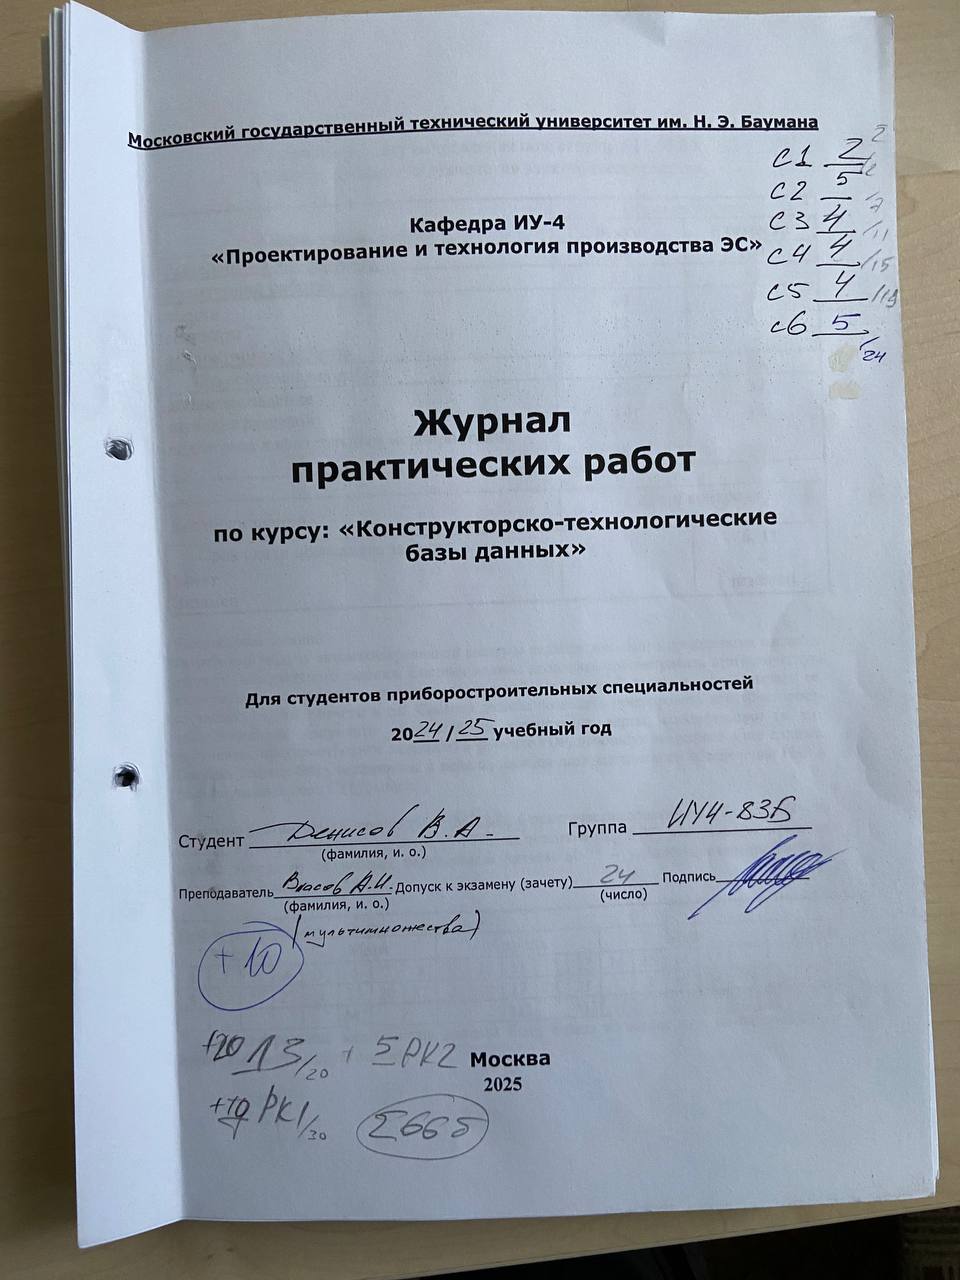 Московский государственный технический университет им. Н. Э. Баумана
2
С1 2 /2
С2 5 /7
С3 4 /11
С4 4 /15
С5 4 /19
С6 5 /24
Кафедра ИУ-4
«Проектирование и технология производства ЭС»
Журнал
практических работ
по курсу: «Конструкторско-технологические
базы данных»
Для студентов приборостроительных специальностей
2024/25 учебный год
Студент Денисов В. А. Группа ИУ4-83Б
(фамилия, и. о.)
Преподаватель Власов А.И. Допуск к экзамену (зачету) 24 Подпись
(фамилия, и. о.) (число)
(мультимножества)
+10
+20 13/20 + 5 РК2
Москва
2025
РК1/30
Σ66б